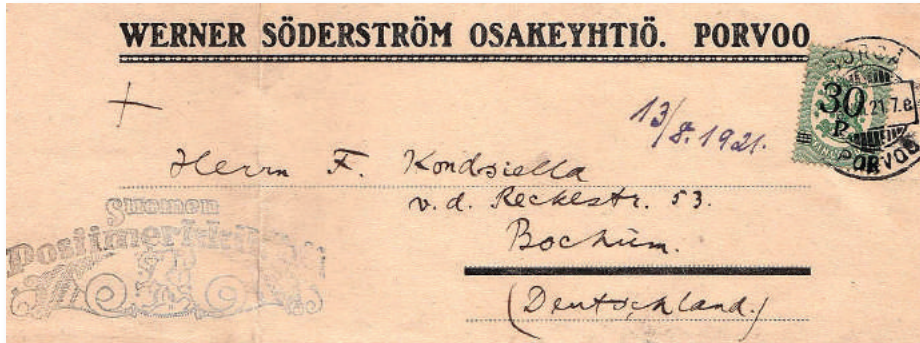 WERNER SÖDERSTRÖM OSAKEYHTIÖ. PORVOO
BORGÅ
30
P.
21.7.e
PORVOO
13/8.1921.
Herrn F. Kondziella
v. d. Reckestr. 53.
Bochum.
(Deutschland.)
Suomen